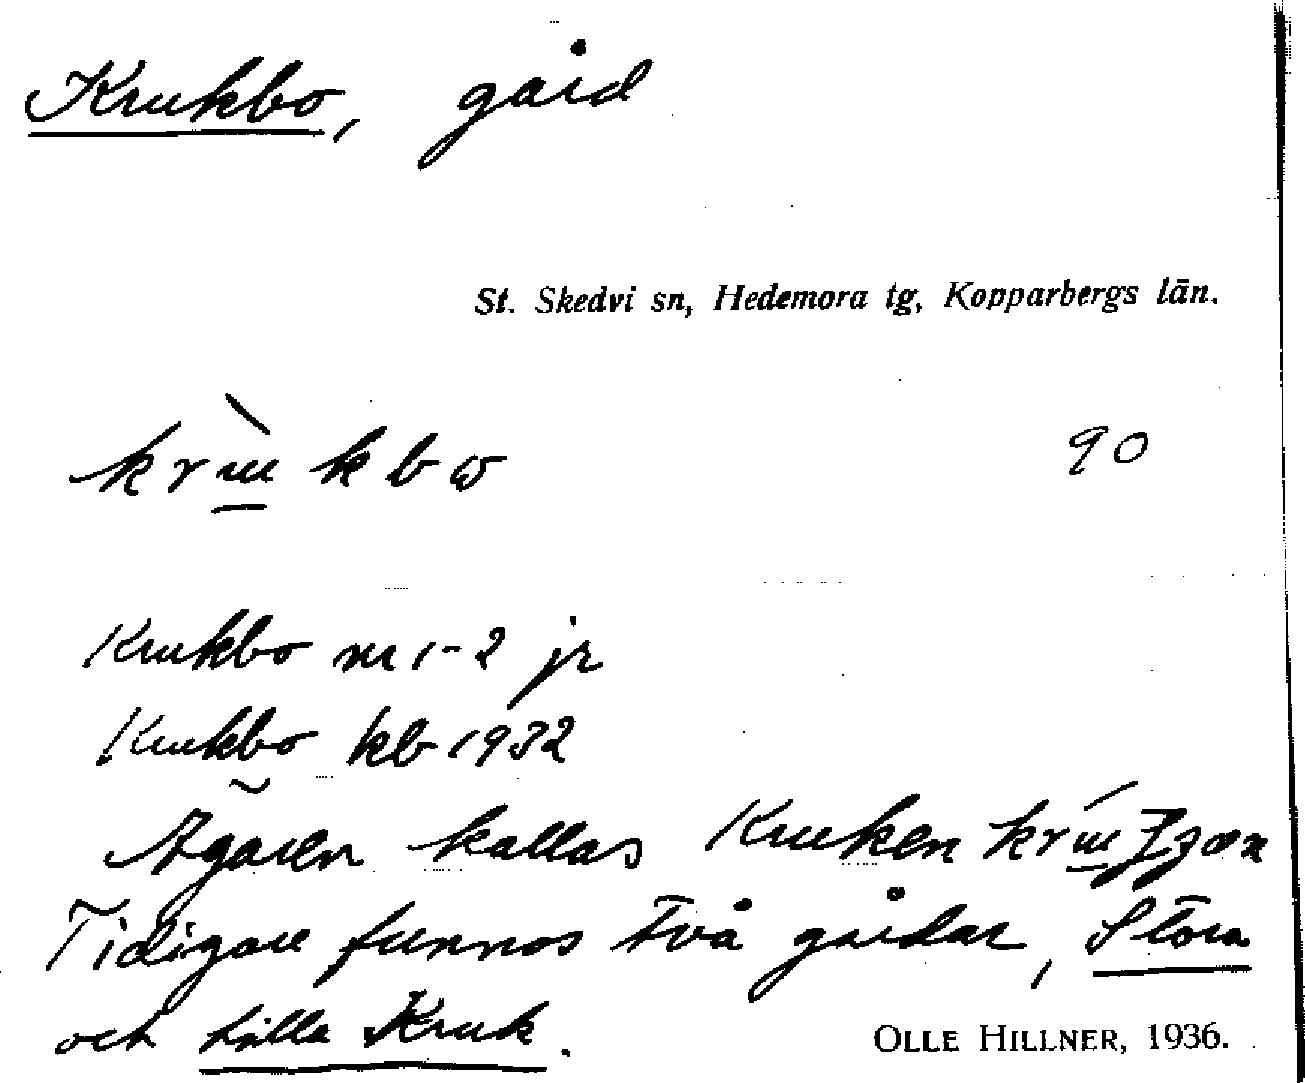 Krukbo, gård
St. Skedvi sn, Hedemora tg, Kopparbergs län.
krùkbω 90
Krukbo nr 1-2 jr
Krukbo kb 1932
Ägaren kallas Kruken
Tidigare funnos två gårdar, Stora
och Lilla Kruk.
OLLE HILLNER, 1936.